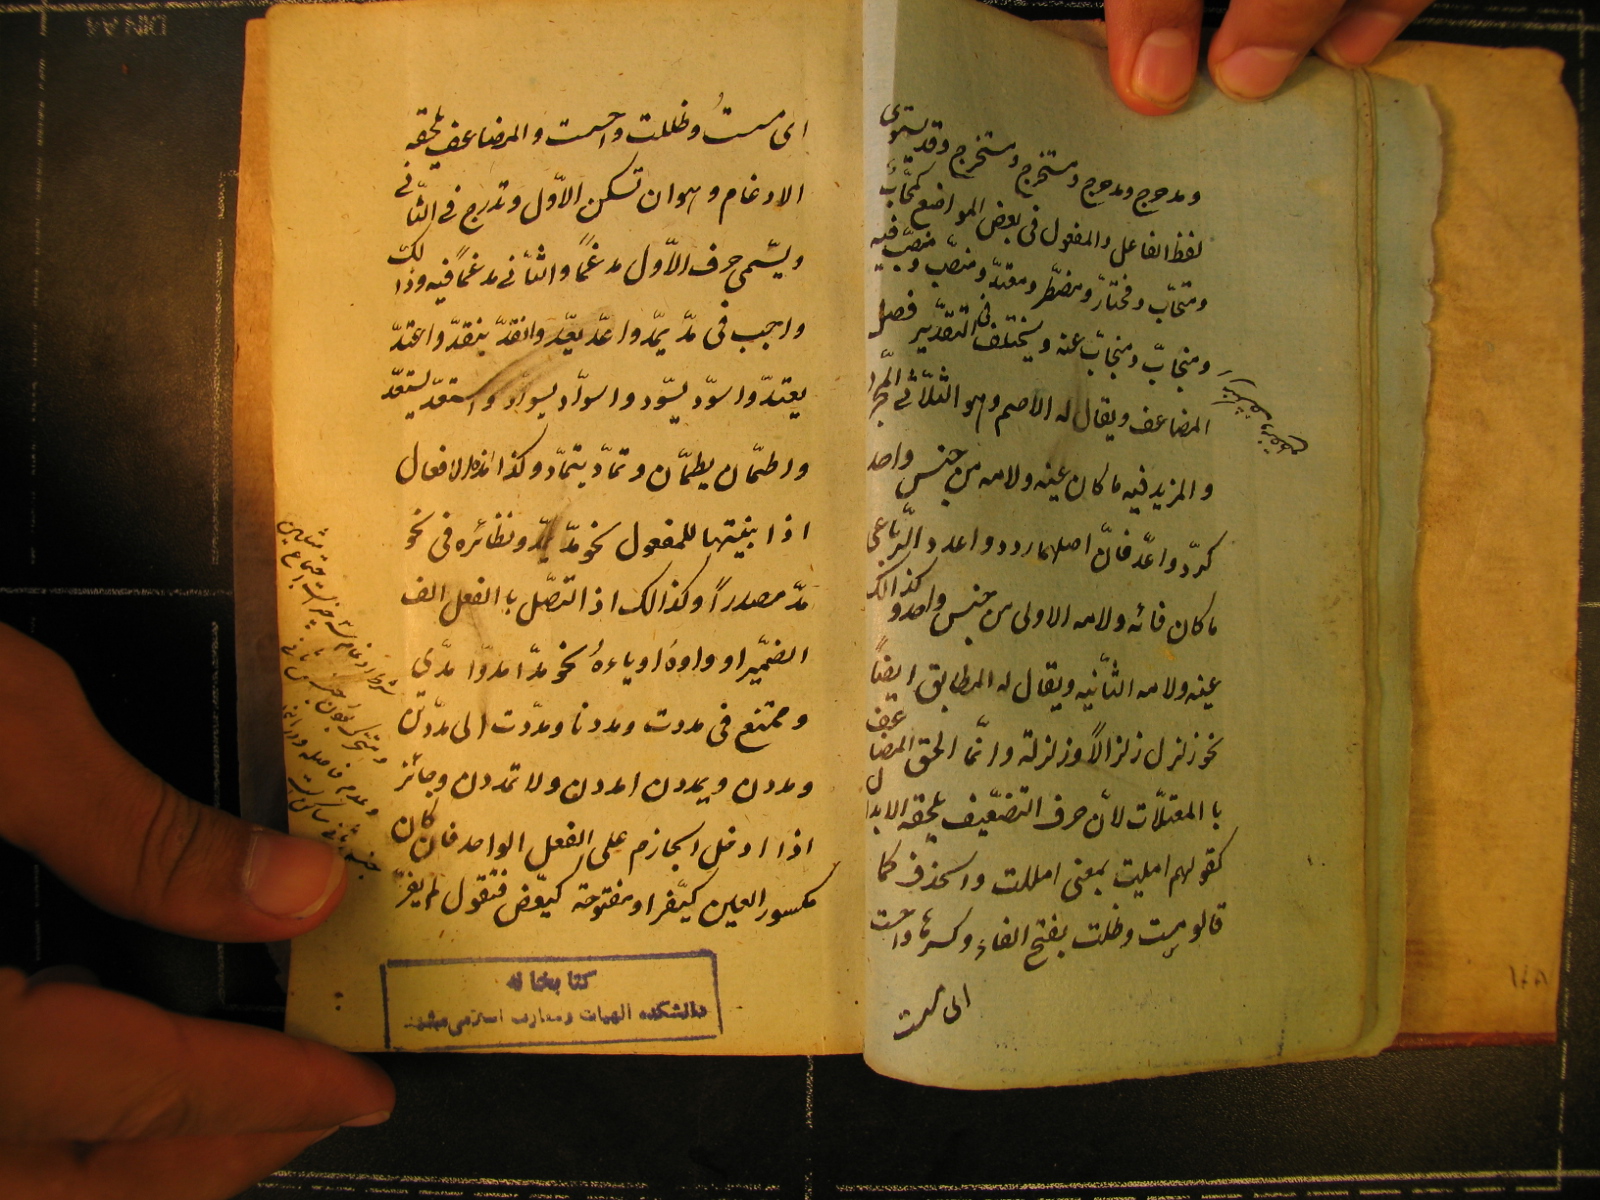 ومدحرج ومدحرج ومستخرج ومستخرج وقد يستوى
لفظ الفاعل والمفعول فى بعض المواضع كمحابّ
ومتحابّ ومختارّ ومضطّر ومعتدّ ومنصبّ ومنصبّ فيه
ومنجابّ ومنجابّ عنه ويختلف فى التقدير فصل
المضاعف ويقال له الاصم وهو الثلاثى المجرد
والمزيد فيه ما كان عينه ولامه من جنس واحد
كردّ واعدّ فانّ اصلهما ردد واعدد الرّباعى
ما كان فائه ولامه الاولى من جنس واحد وكذالك
عينه ولامه الثانيه ويقال له المطابق ايضاً
نحو زلزل زلزالاً وزلزلة وانّما الحق المضاعف
با المعتلّات لأن حرف التضعيف يلحقه الابدال
كقولهم امليت بمعنى امللت واحذف كما
قالو مست وظلت بفتح الفاء وكسرها واحست
اى مست
اى مسست وظللت واحسست والمضاعف يلحقه
الادغام وهو ان تسكن الاوّل وتدرج فى الثّانى
ويسّمى حرف الاوّل مدغماً والثانى مدغماً فيه وذالك
واجب فى مدّ يمدّ واعدّ يعدّ وانقدّ ينقدّ واعتدّ
يعتدّ واسودّ يسودّ واسوادّ يسوادّ واستعدّ يستعدّ
واطمّان يطمّان وتمادّ يتمادّ وكذا هذه الافعال
اذا بنيتها للمفعول نحو مدّ يمدّ ونظائره فى نحو
مدّ مصدراً وكذالك اذ التصّل با الفعل الف
الضمير او واوهُ او ياءهُ نحو مدّا مدّوا مدّى
وممتنع فى مددت ومددنا ومددت الى مددتن
ومددن ويمددن امددن ولا تمددن وجائز
اذا ادخل الجازم على الفعل الواحد فان كان
مكسور العين كيفّر او مفتوحة كيعّض فتقول لم يفرّ
شرط ادغام سه چيز است اجتماع مثلين
كتابخانه
دانشكده الهيات ومعارف اسلامى مشهد